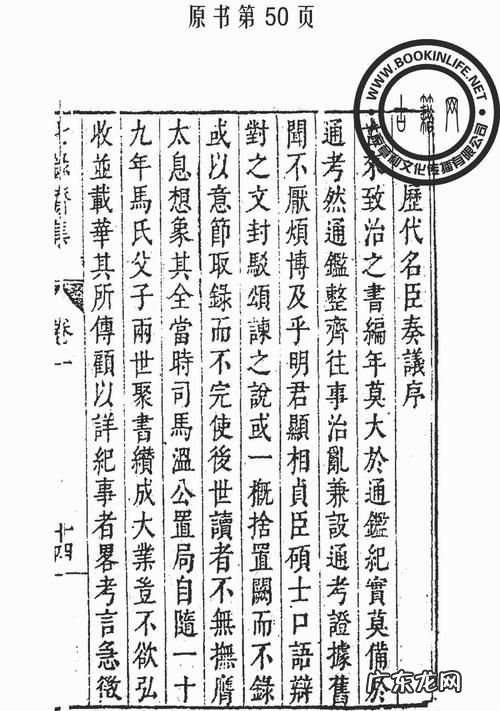 原书第 50 页
WWW.BOOKINLIFE.NET
古籍网
文化传播有限公司
歷代名臣奏議序
來致治之書編年莫大於通鑑紀實莫備於
通考然通鑑整齊往事治亂兼設通考證據舊
聞不厭煩博及乎明君顯相貞臣碩士口語辯
對之文封駁頌諫之說或一概捨置闕而不錄
或以意節取錄而不完使後世讀者不無撫膺
太息想象其全當時司馬溫公置局自隨一十
九年馬氏父子兩世聚書纘成大業豈不欲弘
收並載華其所傳顧以詳紀事者畧考言急徵
七錄齋集
卷一
十四
广东龙网